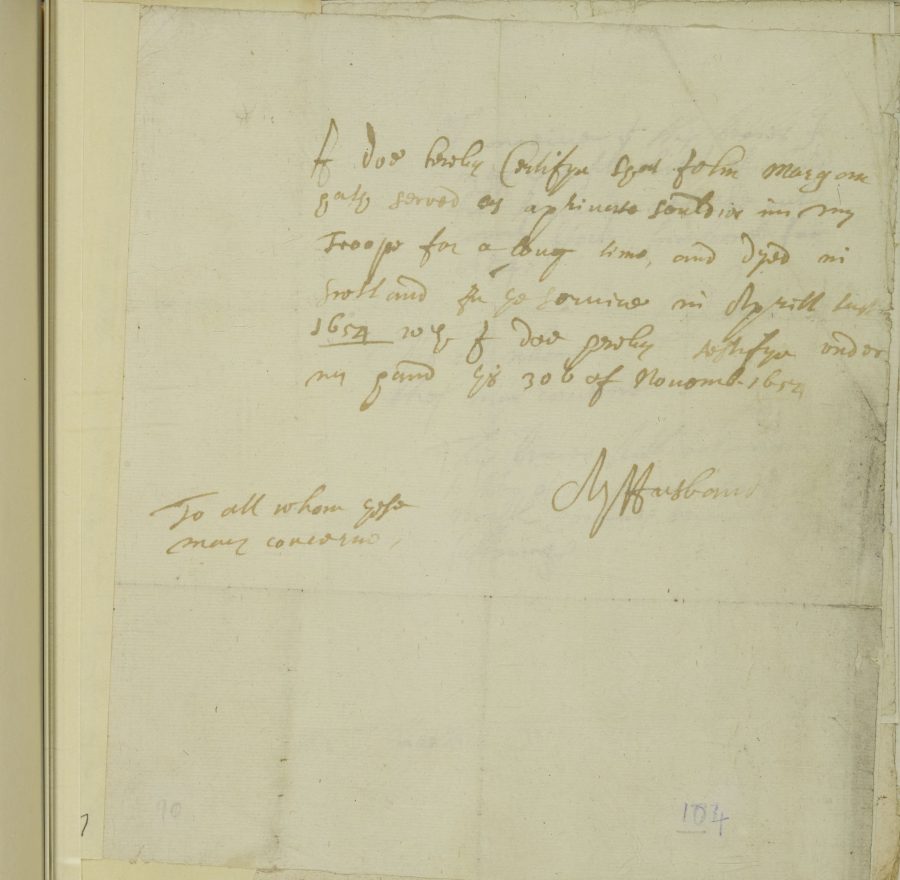 I doe hereby Certifye that John Morgan
hath served as a private souldier in my
Troope for a long time, and dyed in
Scotland in ye service in Aprill last
1654 wch I doe hereby testifye under
my hand ys 30th of Novemb. 1654
Az Husband
To all whom these
may concerne,
90
104
7